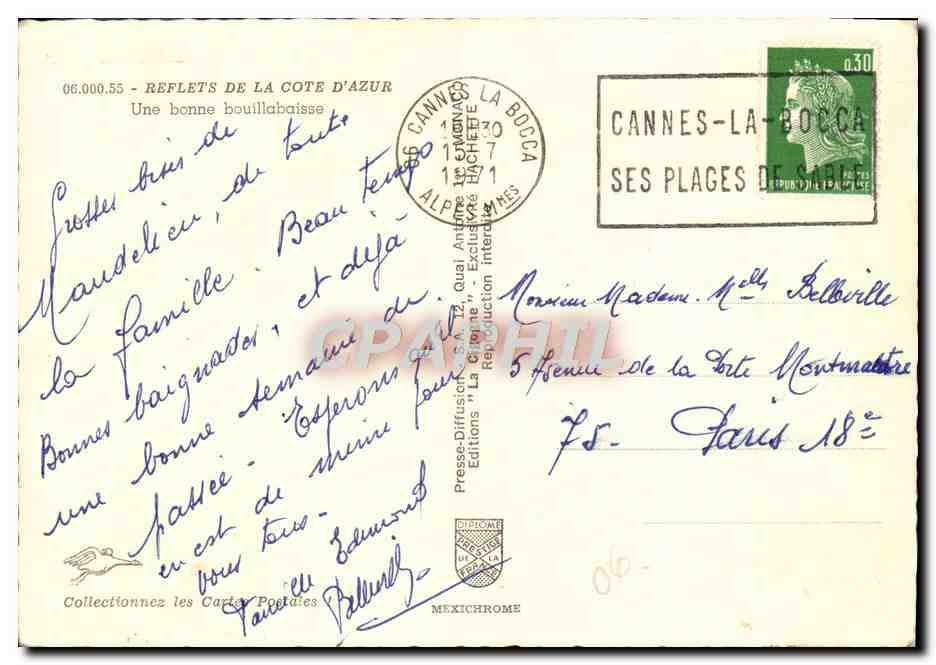 06.000.55 - REFLETS DE LA COTE D'AZUR
Une bonne bouillabaisse
Grosses bises de
Mandelieu, de toute
la famille. Beau temps
Bonnes baignades, et déjà
une bonne semaine de
passée - Espérons qu'il
en est de même pour
vous tous -
Famille Edmond
Belleville
Collectionnez les Cartes Postales
Presse-Diffusion, S.A. 12, Quai Antoine 1er - MONACO
Editions "La Cigogne" - Exclusivité HACHETTE
Reproduction interdite
DIPLOME
PRESTIGE
DE LA
FRANCE
MEXICHROME
06 CANNES LA BOCCA
30
7
1971
ALPES-Mmes
CANNES-LA-BOCCA
SES PLAGES DE SABLE
0.30
POSTES
REPUBLIQUE FRANCAISE
Monsieur Madame Melles Belleville
5 Avenue de la Porte Montmartre
75 - Paris 18e
06.
CPAPHIL